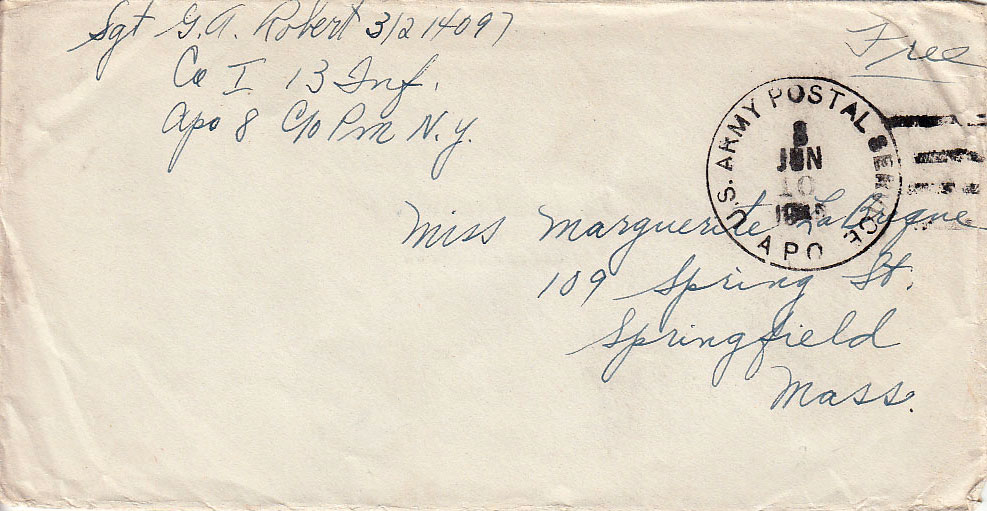 Sgt G.A. Robert 31214097
Co I 13 Inf.
Apo 8 C/o Pm N.Y.
Free
U.S. ARMY POSTAL SERVICE
8
JUN
10
APO
Miss Marguerite
109 Spring St.
Springfield
Mass.